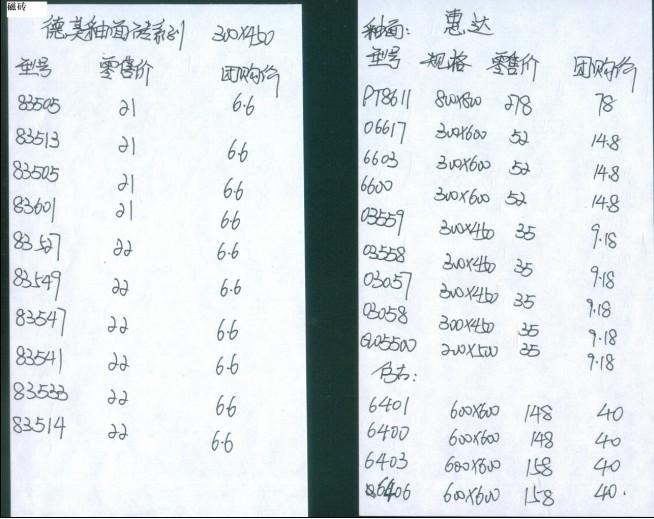 磁砖
德美釉面砖系列 300×450
型号 零售价 团购价
83505 21 6.6
83513 21 6.6
83505 21 6.6
83601 21 6.6
83527 22 6.6
83549 22 6.6
83547 22 6.6
83541 22 6.6
83533 22 6.6
83514 22 6.6
釉面: 惠达
型号 规格 零售价 团购价
PT8611 800×800 278 78
06617 300×600 52 14.8
6603 300×600 52 14.8
6600 300×600 52 14.8
03559 300×450 35 9.18
03558 300×450 35 9.18
03057 300×450 35 9.18
03058 300×450 35 9.18
200×500 35 9.18
仿古:
6401 600×600 148 40
6400 600×600 148 40
6403 600×600 158 40
6406 600×600 158 40.